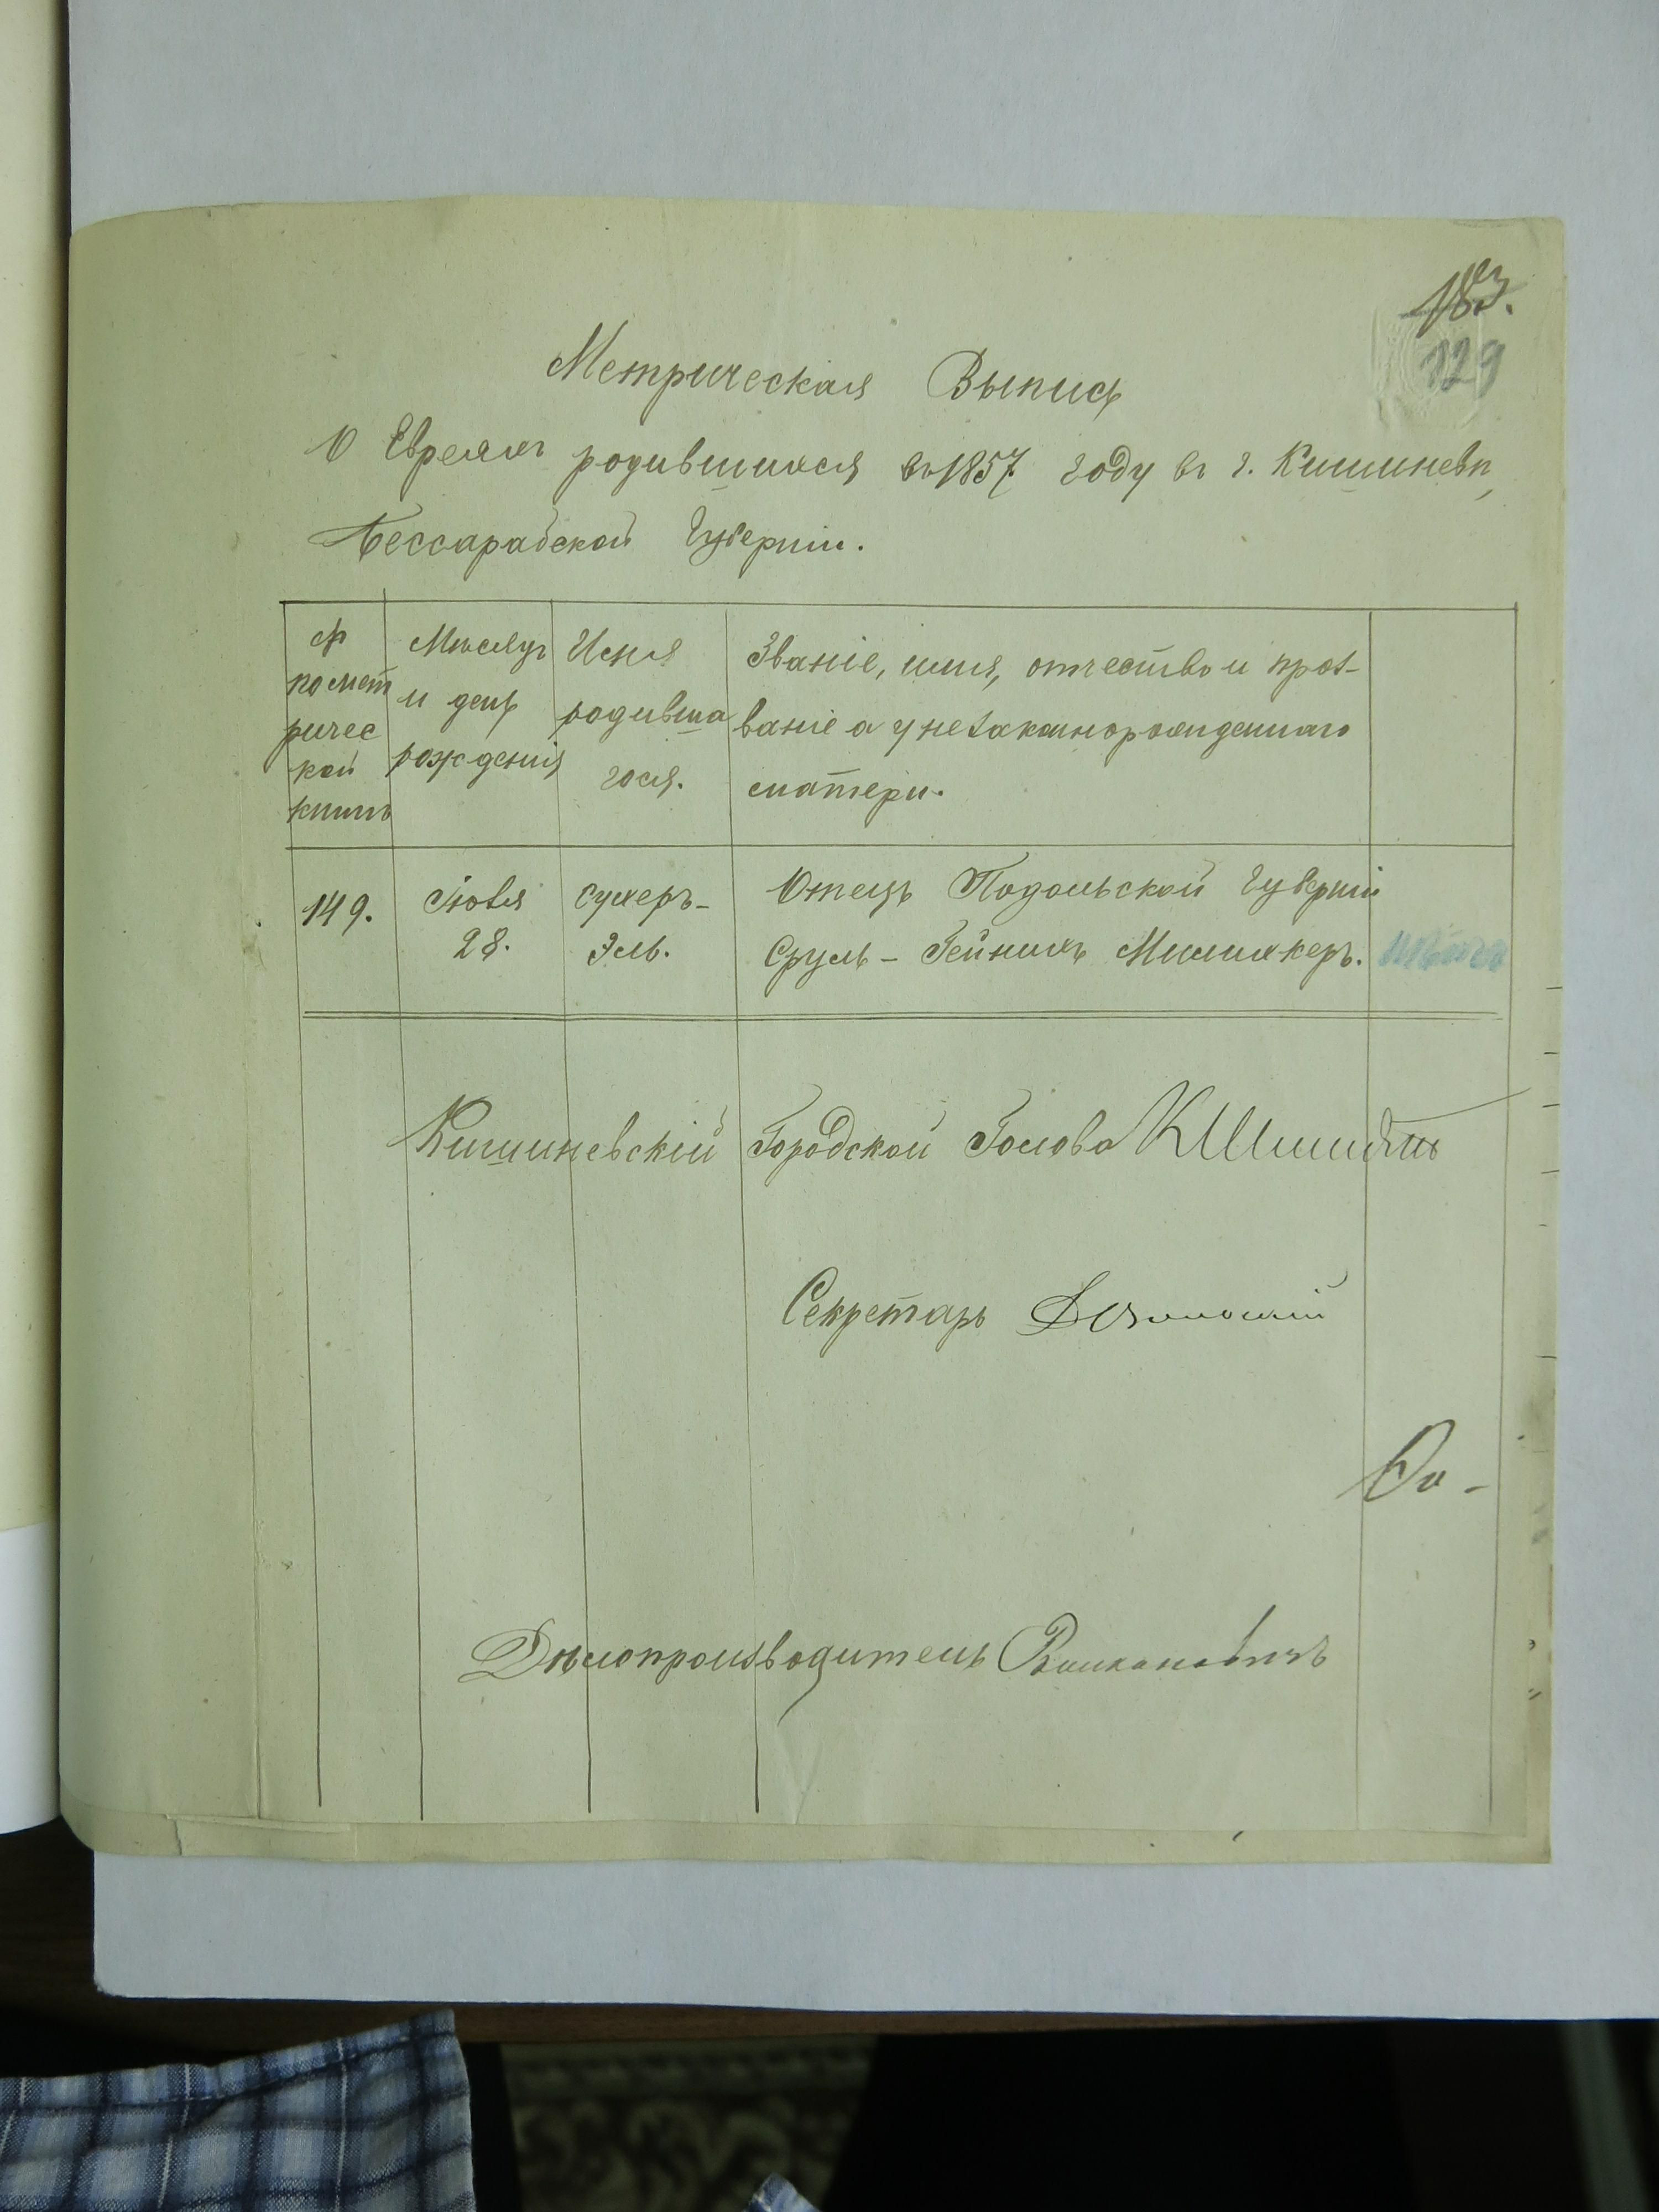 183.
129
Метрическая Выпись
О Евреяхъ родившихся въ 1857 году въ г. Кишиневѣ,
Бессарабской Губерніи.
№ по метрической книгѣ
Мѣсяцъ и день рожденія
Имя родившагося.
Званіе, имя, отчество и прозваніе а у незаконнорожденнаго матери.
149.
Іюля 28.
Сухеръ-Эль.
Отецъ Подольской Губерніи
Сруль-Гейнихъ Милихкеръ.
Кишиневскій Городской Голова КШмидтъ
Секретарь
Дѣлопроизводитель